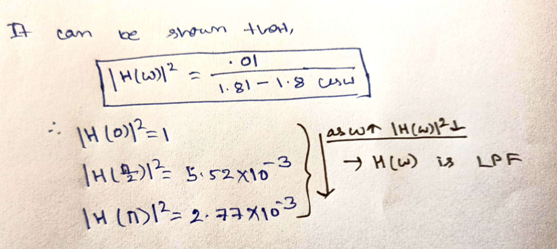 It can be shown that,
|H(ω)|² = .01 / 1.81 - 1.8 cosω
∴ |H(0)|² = 1
|H(π/2)|² = 5.52×10⁻³
|H(π)|² = 2.77×10⁻³
as ω↑ |H(ω)|²↓
→ H(ω) is LPF